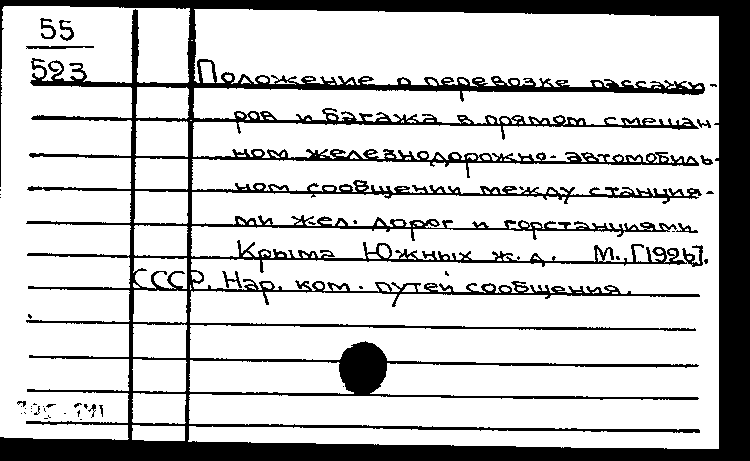 55
523
Положение о перевозке пассажи-
ров и багажа в прямом смешан-
ном железнодорожно-автомобиль-
ном сообщении между станция-
ми жел. дорог и горстанциями
Крыма Южных ж. д. М., [1926].
СССР. Нар. ком. путей сообщения.